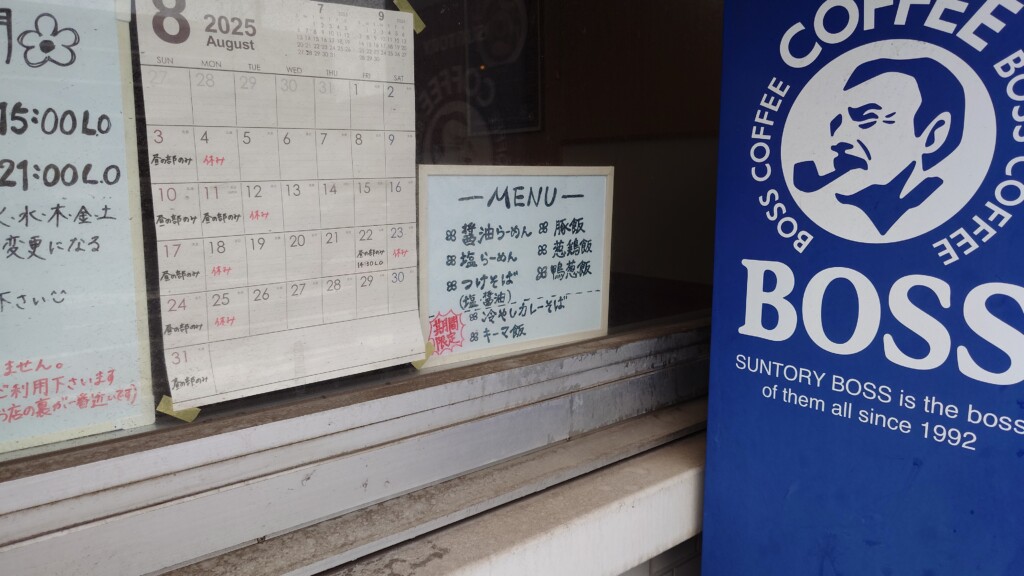 15:00LO
21:00LO
火・水・木・金・土
変更になる
下さい
ません。
ご利用下さいます
店の裏が一番近いです)
8
2025
August
7
9
SUN MON TUE WED THU FRI SAT
27 28 29 30 31 1 2
3 4 5 6 7 8 9
昼の部のみ 休み
10 11 12 13 14 15 16
昼の部のみ 昼の部のみ 休み
17 18 19 20 21 22 23
昼の部のみ 休み 昼の部のみ 休み
14:30LO
24 25 26 27 28 29 30
昼の部のみ 休み
31
昼の部のみ
MENU
醤油らーめん
塩らーめん
つけそば
(塩 醤油)
豚飯
葱鶏飯
鴨葱飯
期間限定
冷やしカレーそば
キーマ飯
BOSS COFFEE BOSS COFFEE
BOSS COFFEE
BOSS
SUNTORY BOSS is the boss
of them all since 1992